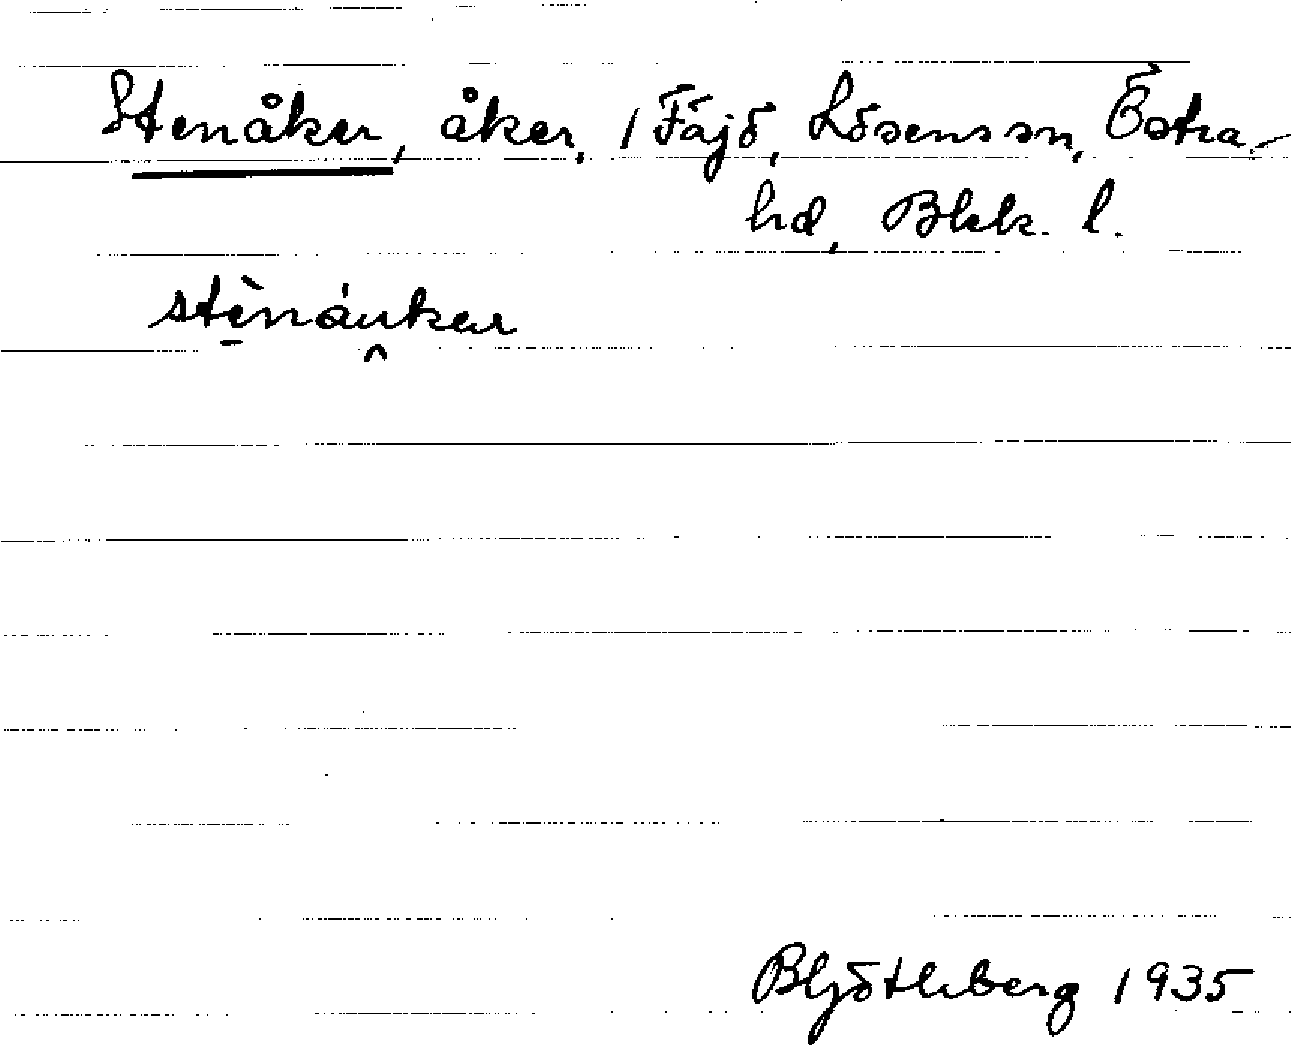 Stenåker, åker, 1 Fäjö, Lösens sn, Östra
hd, Blek. l.
stènáuker
Bl Götlkberg 1935